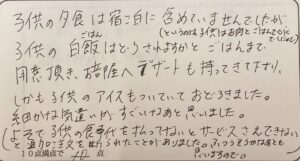 子供の夕食は宿泊に含めていませんでしたが
(というのは子供はお肉とごはんで
でいいし)
子供の白飯はどうされますかとごはんまで
ごはん
用意頂き、お部屋へデザートも持ってきて下さり、
しかも子供のアイスもついていておどろきました。
細かな気遣いがすごいなあと思いました。
(よそで子供の食事代を払ってないとサービスさえできない
と追加注文を
られたことがありました。ふつうそうかなとも
思いますので。)
10点満点で 10 点